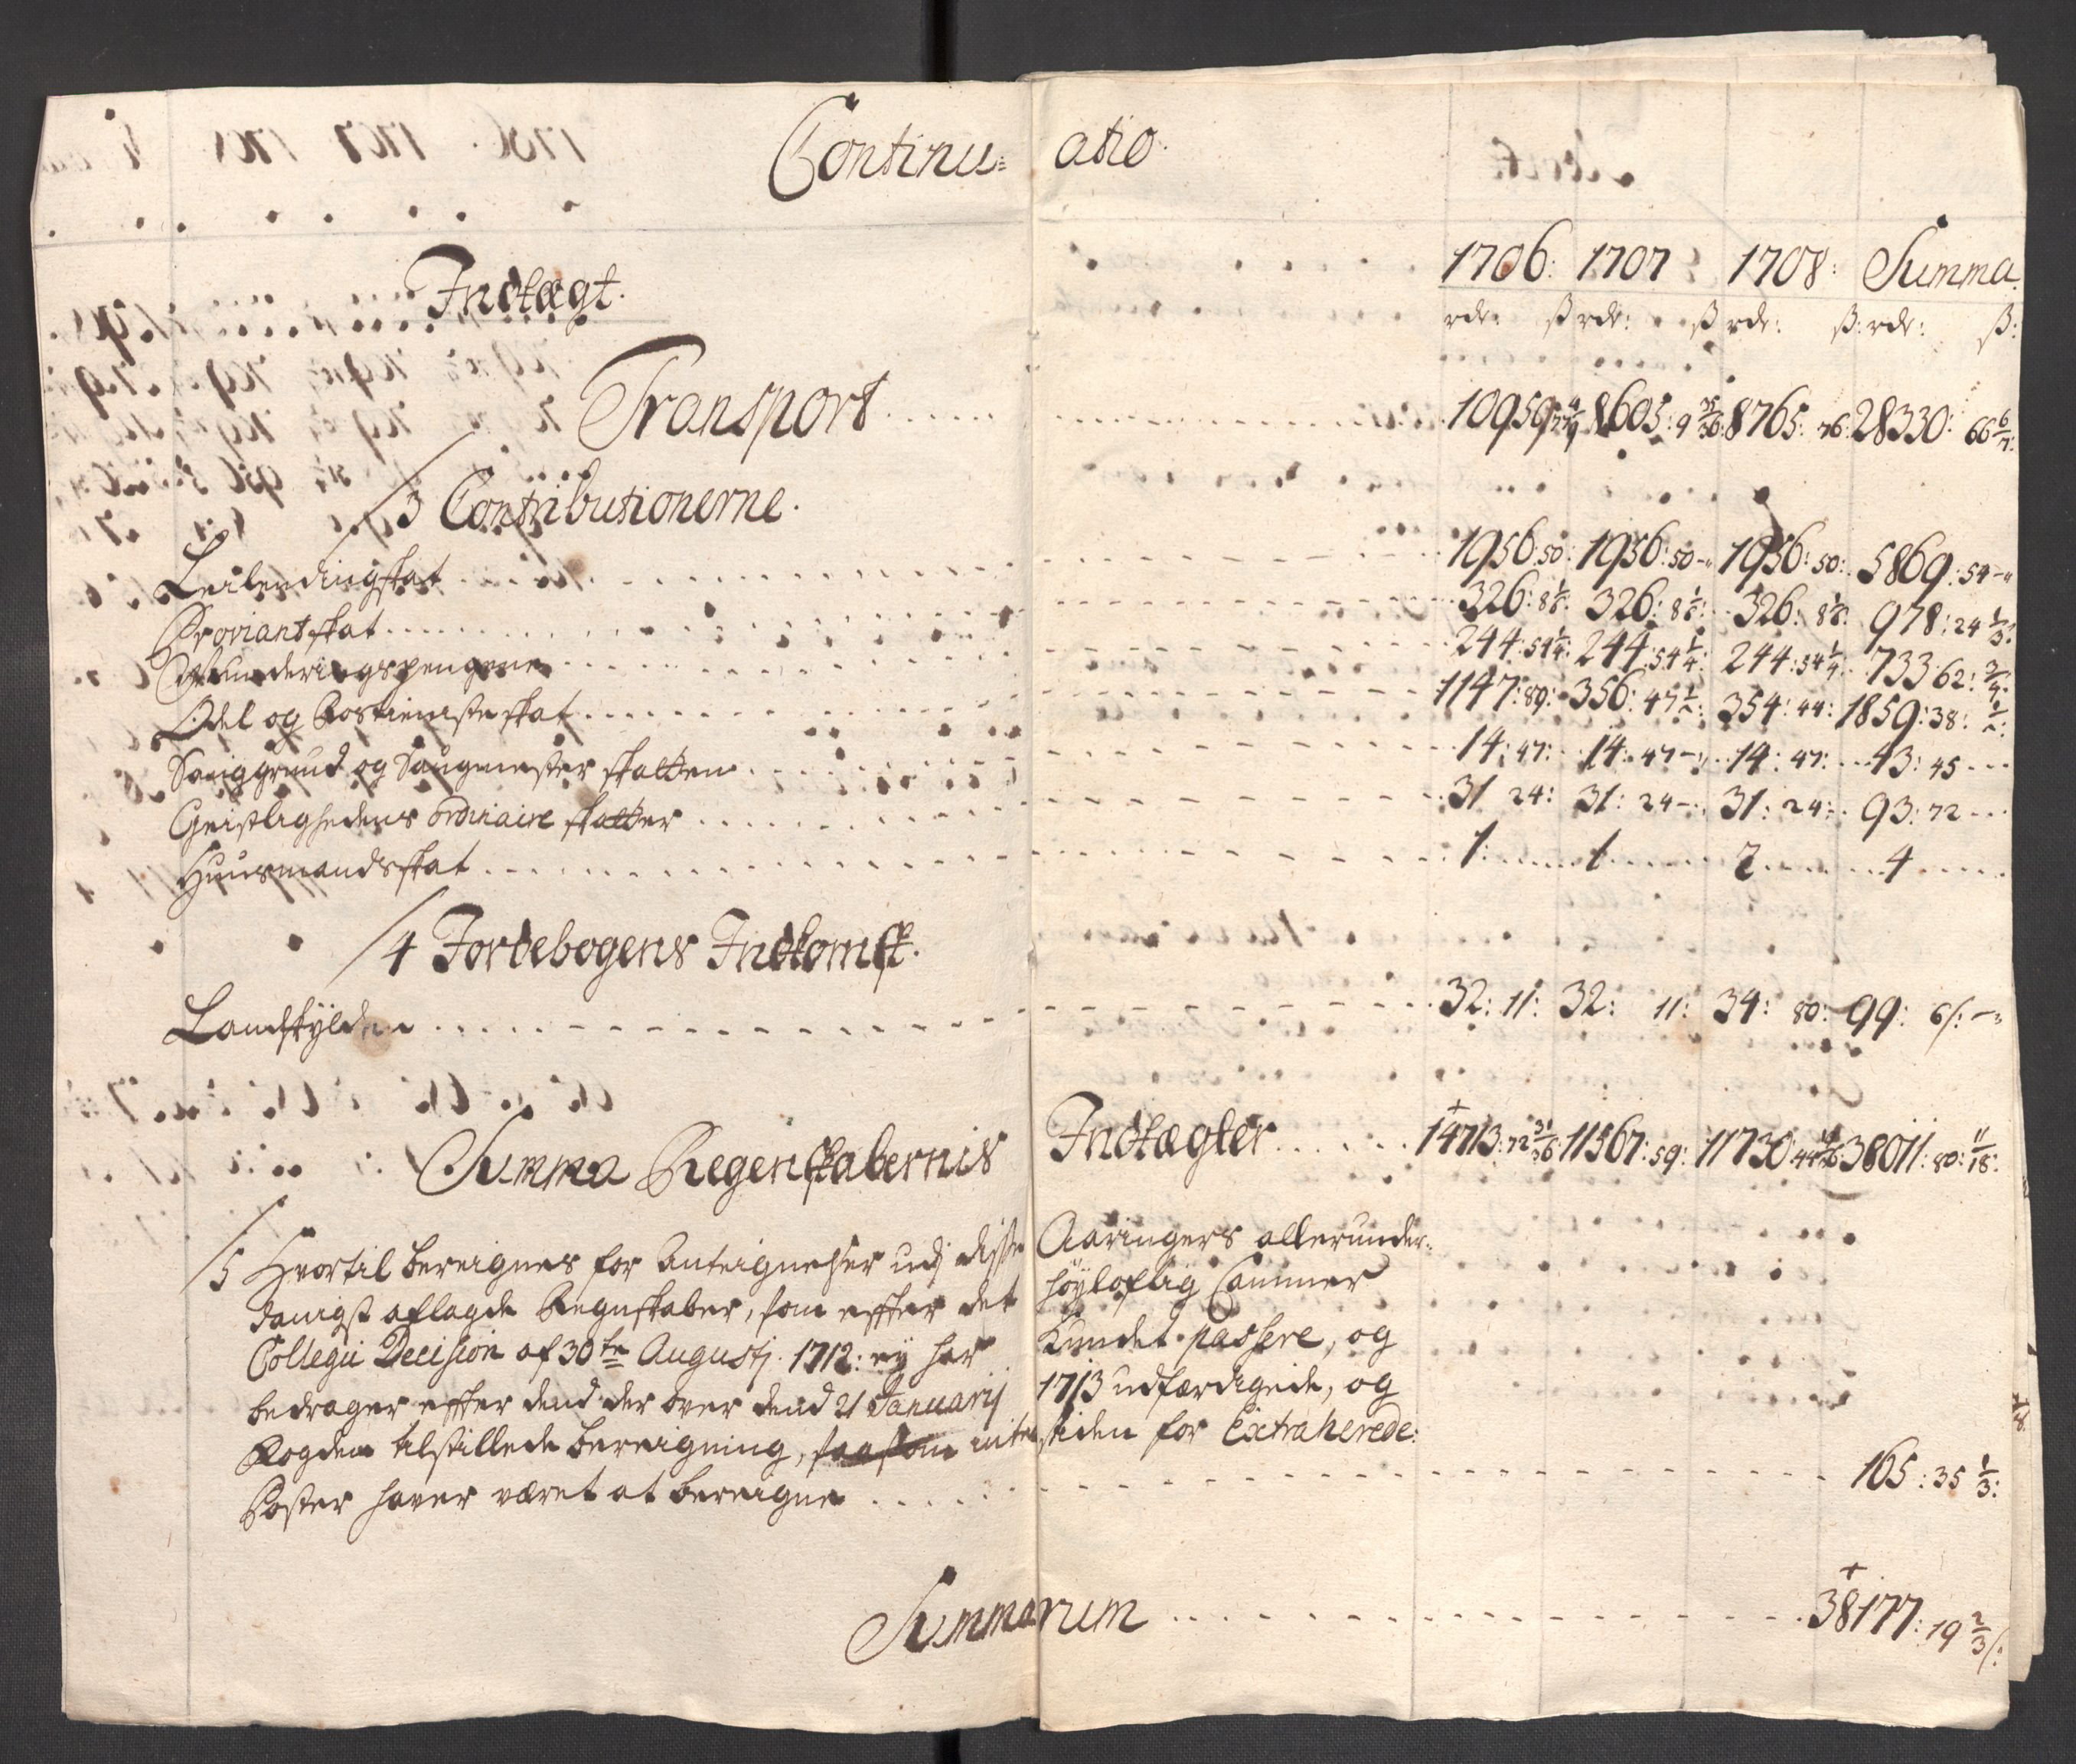 Continu= atio.
Indtægt. 1706: 1707 1708: Summa.
rdr: ß rdr: ß rdr: ß: rdr: ß:
Transport 10959 8605: 9 8765: 76: 28330: 66 6/7:
/3 Contributionerne.
Leilendingskat 1956: 50: 1956: 50 - 1956: 50: 5869: 54 -
Proviantskat 326: 8 1/6: 326: 8 1/6: 326: 8 1/6: 978: 24 1/3:
Munderingspengene 244: 54 1/4: 244: 54 1/4: 244: 54 1/4: 733: 62: 3/4:
Odel og Rostienste skat 1147: 89: 356: 47 1/2: 354: 44: 1859: 38: 1/2:
Saug grund og Saugmester skatten 14: 47: 14: 47 - 14: 47: 43: 45
Geistlighedens ordinaire skatter 31 24: 31: 24 -: 31: 24: 93: 72
Huusmandsskat 1: 1 2 4
/4 Jordebogens Indkomst.
Landskylden 32: 11: 32: 11: 34: 80: 99: 6 ß: -
Summa Regenskabernis Indtægter 14713: 72 31/36 11567: 59: 11730: 44 38011: 80: 11/18:
/5 Hvortil bereignes for Anteignelser udj disse Aaringers allerunder=
danigst aflagde Regnskaber, som effter det höyloflig Cammer
Collegii Decision af 30te Augustj. 1712: ey har kundet passere, og
bedrager effter dend der over dend 21 Januarij 1713 udfærdigede, og
Fogden tilstillede bereigning, saasom intet siden for Extraherede:
Poster haver været at bereigne 165: 35 1/3:
Summarum 38177: 19 2/3 ß: